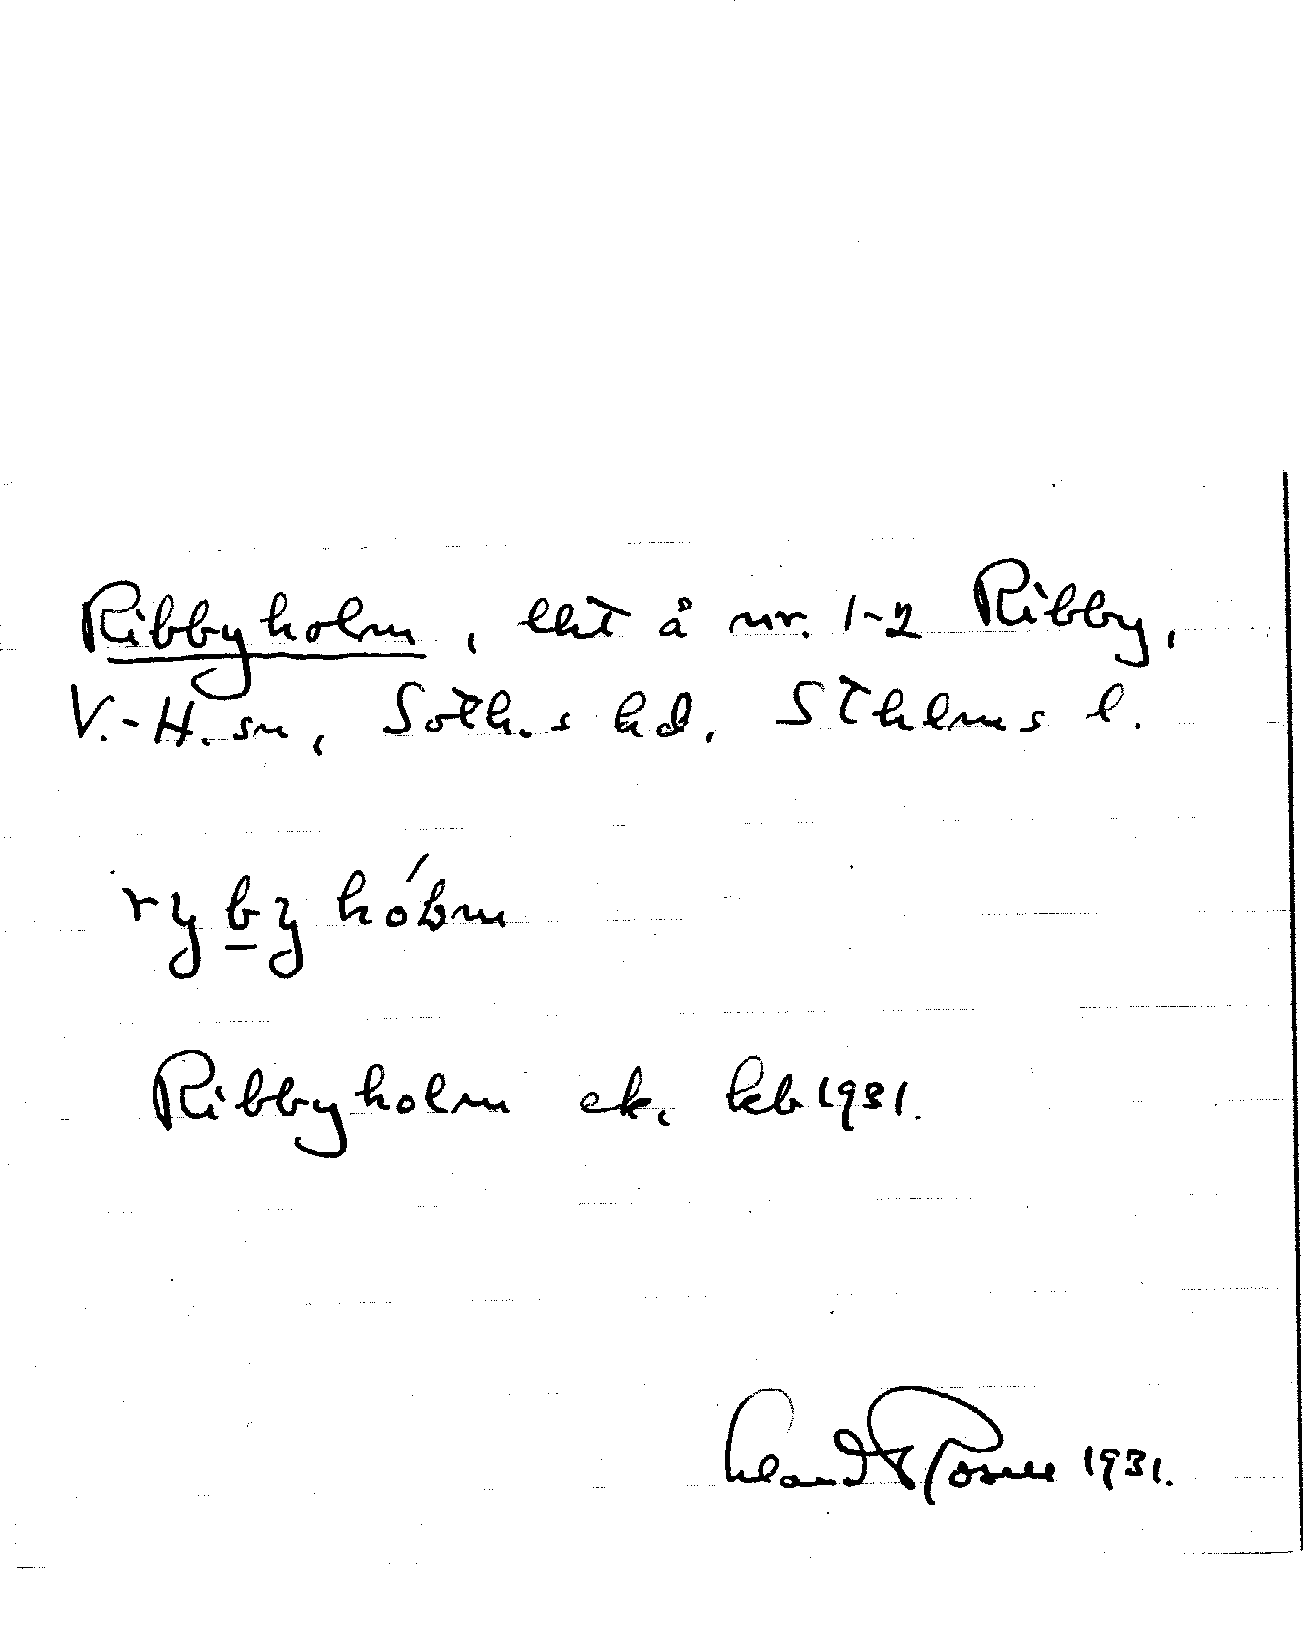 Ribbyholm, lht å nr. 1-2 Ribby,
V.-H. sn, Soth.s hd, Sthlms l.
ryby hólm
Ribbyholm ek. kb 1931.
1931.